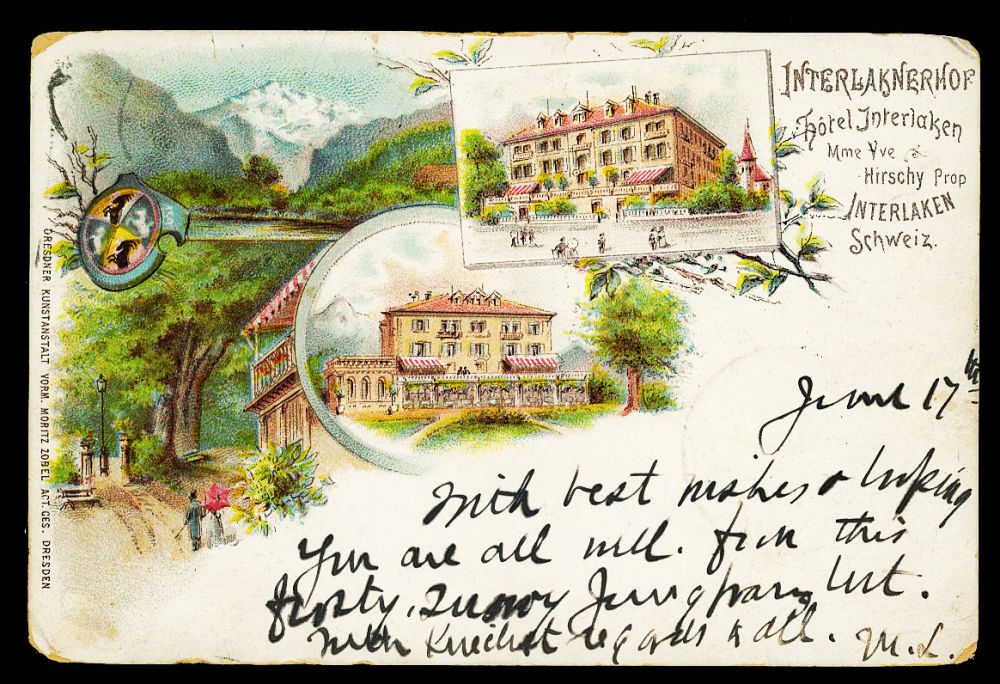 INTERLAKNERHOF
Hôtel Interlaken
Mme Vve
Hirschy Prop
INTERLAKEN
Schweiz.
DRESDNER KUNSTANSTALT VORM. MORITZ ZOBEL ACT. GES. DRESDEN
June 17th
With best wishes & hoping
you are all well. from this
frosty, snowy Jungfrau
With kindest regards to all. M.L.